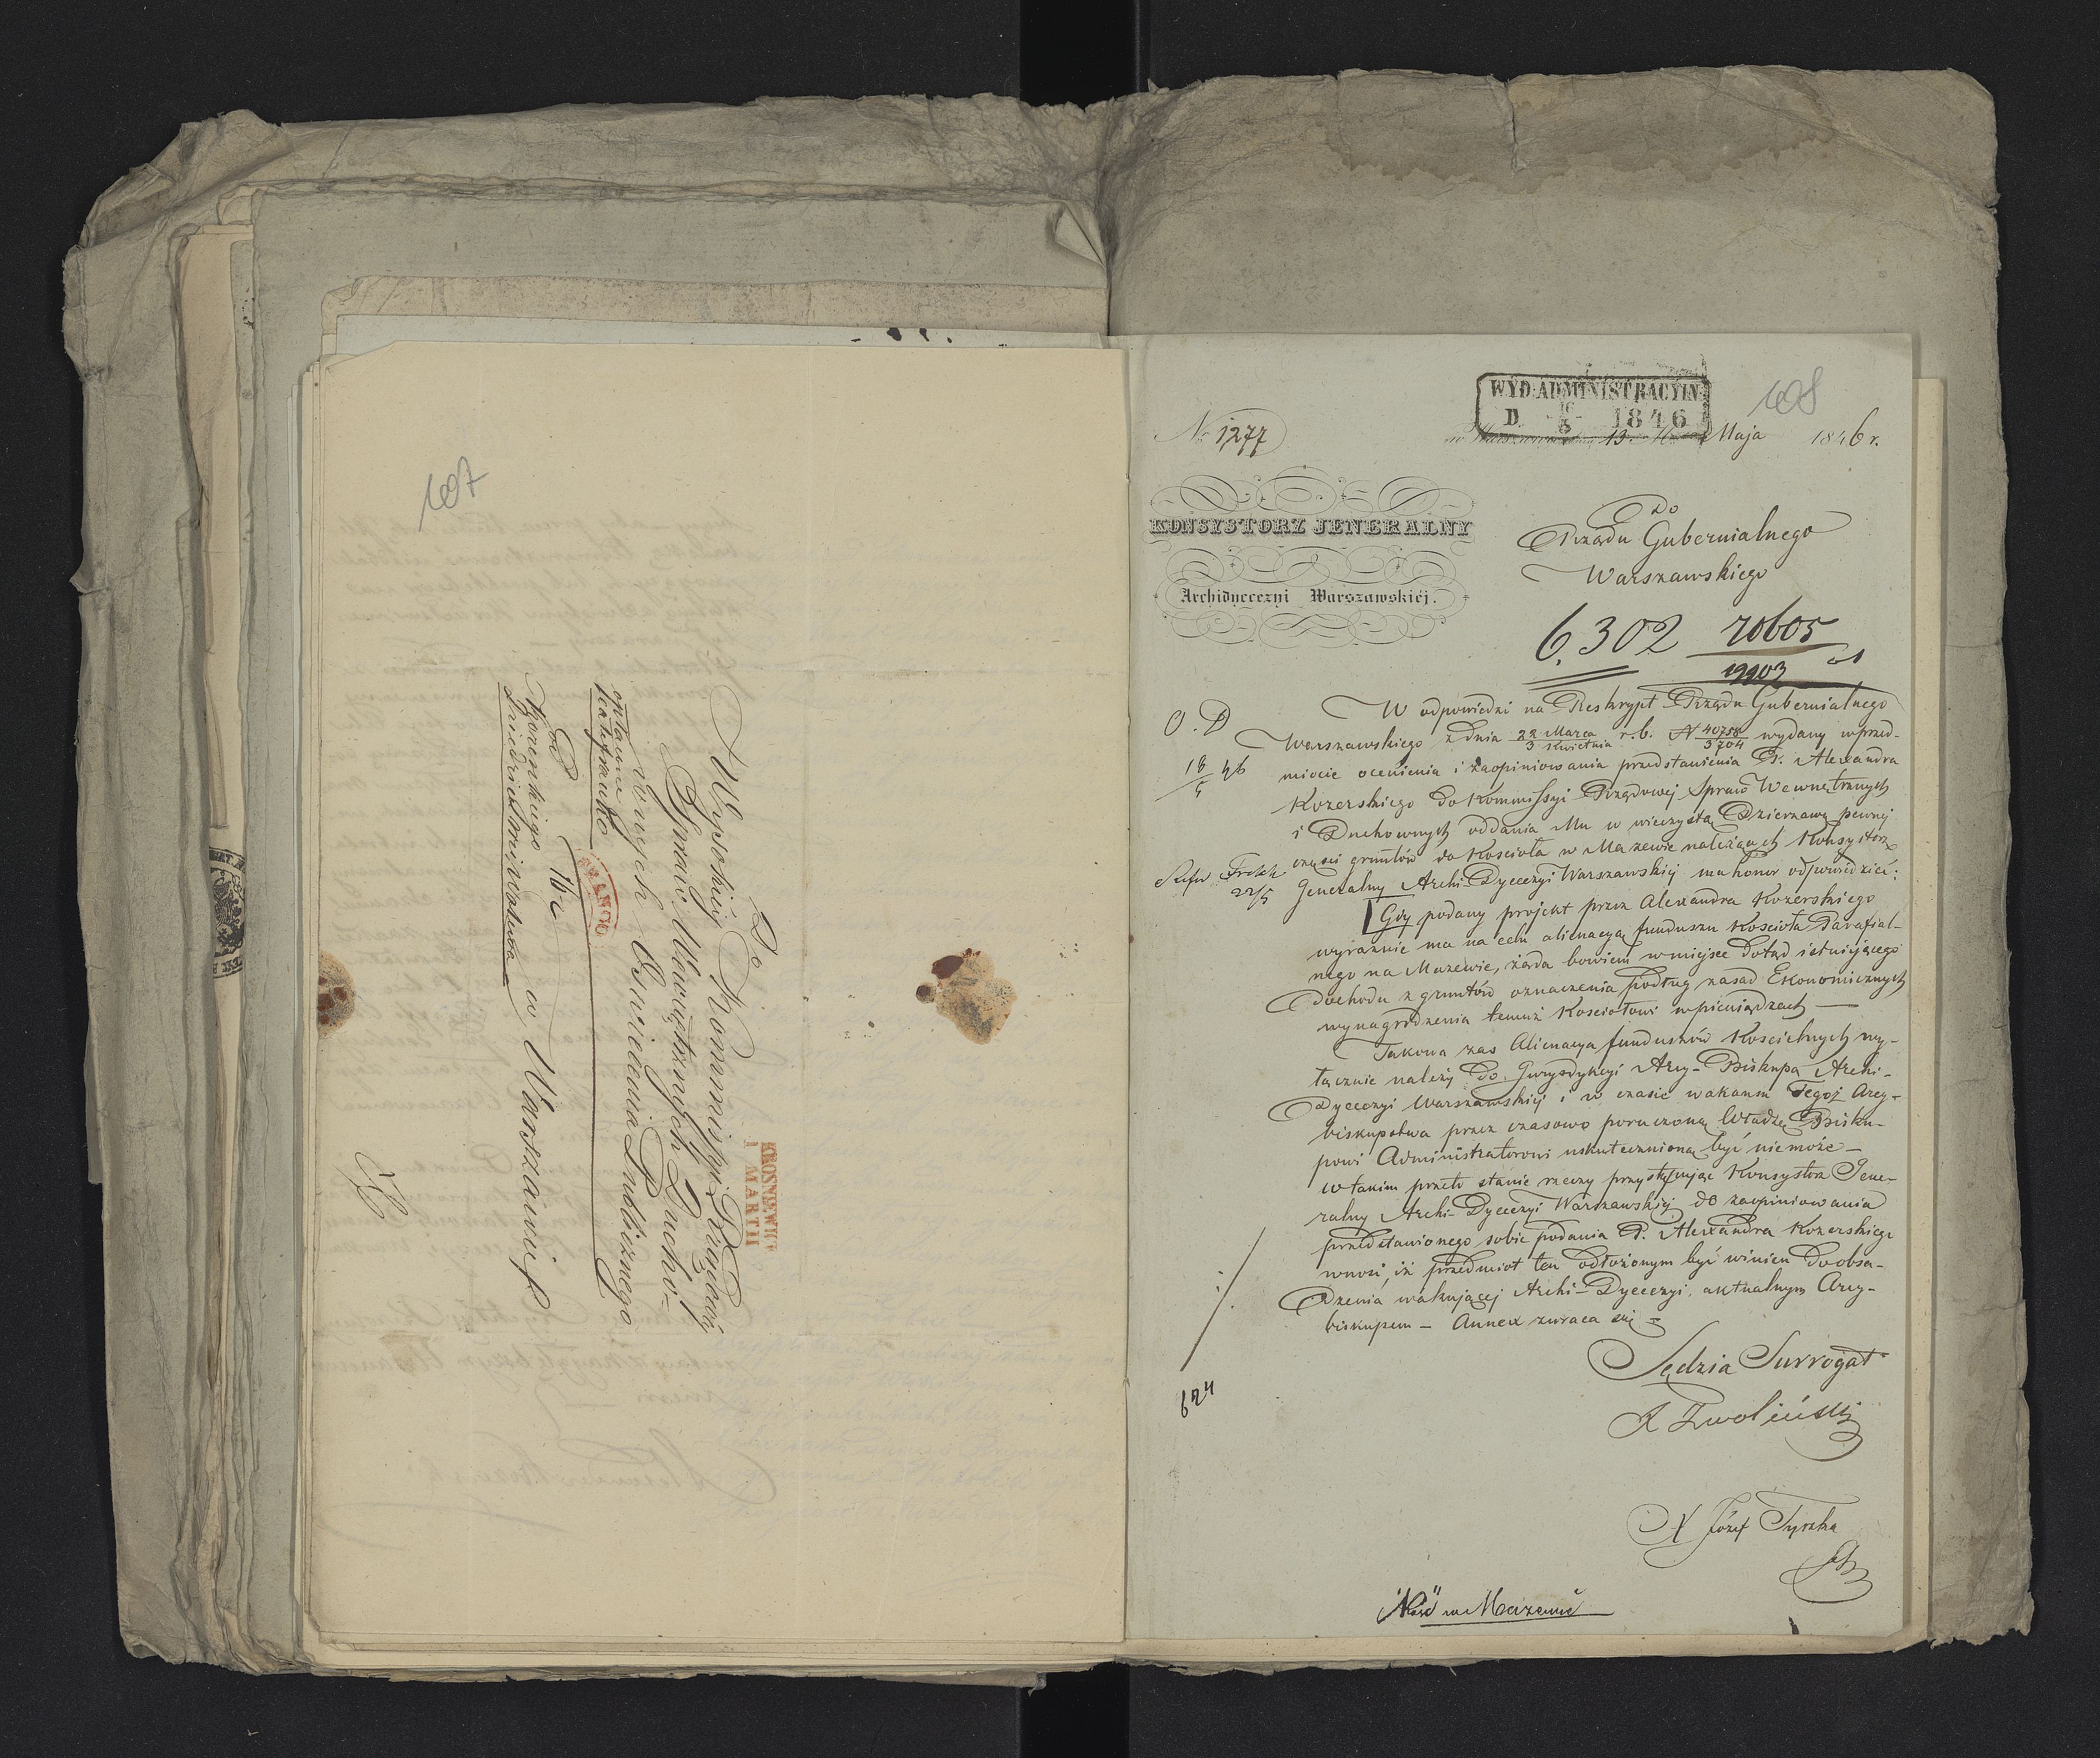 107
Do
Wysokiéj Kommissyi Rządowéj
Spraw Wewnętrznych Ducho-
wnych i Oświecenia Publicznego
w Warszawie
opłacone
FRANCO
od
Kozerskiego
KROSNIEWICE
1 MARTII
108
WYD: ADMINISTRACYJN
D 16/5 1846
N. 1277
w Warszawie dnia 13 Maja 1846 r.
KONSYSTORZ JENERALNY
Archidyecezyi Warszawskiéj.
Do
Rządu Gubernialnego
Warszawskiego
6,302 20605
19903
O. D
18/5 46
W odpowiedzi na Reskrypt Rządu Gubernialnego
Warszawskiego z dnia 22 Marca / 3 Kwietnia r. b. N 40758/5704 wydany w przed-
miocie ocenienia i zaopiniowania przedstawienia P. Alexandra
Kozerskiego do Kommissyi Rządowej Spraw Wewnętrznych
i Duchownych oddania Mu w wieczystą Dzierzawę pewnej
częsci gruntów do Koscioła w Mazewie należących Konsystorz
Generalny Archi-Dyecezyi Warszawskiej ma honor odpowiedzieć:
22/5
Gdy podany projekt przez Alexandra Kozerskiego
wyraznie ma na celu alienacyą funduszu Koscioła Parafial-
nego na Mazewie, żąda bowiem w miejsce dotąd istniejącego
dochodu z gruntów oznaczenia podług zasad Ekonomicznych
wynagrodzenia temuż Kosciołowi w pieniądzach —
Takowa zas Alienacya funduszów Koscielnych wy-
łącznie należy do Juryzdykcyi Arcy-Biskupa Archi-
Dyecezyi Warszawskiej i w czasie wakansu Tegoż Arcy-
biskupstwa przez czasowo poruczoną Władzę Bisku-
powi Administratorowi uskutecznioną być niemoże —
w takim przeto stanie rzeczy przystępując Konsystorz Gene-
ralny Archi-Dyecezyi Warszawskiej do zaopiniowania
przedstawionego sobie podania P. Alexandra Kozerskiego
wnosi, iż przedmiot ten odłożonym być winien do obsa-
dzenia wakującej Archi-Dyecezyi, aktualnym Arcy-
biskupem — Annex zwraca się —
624
Sędzia Surrogat
Zwoliński
Józef Tyszka
w Mazewie